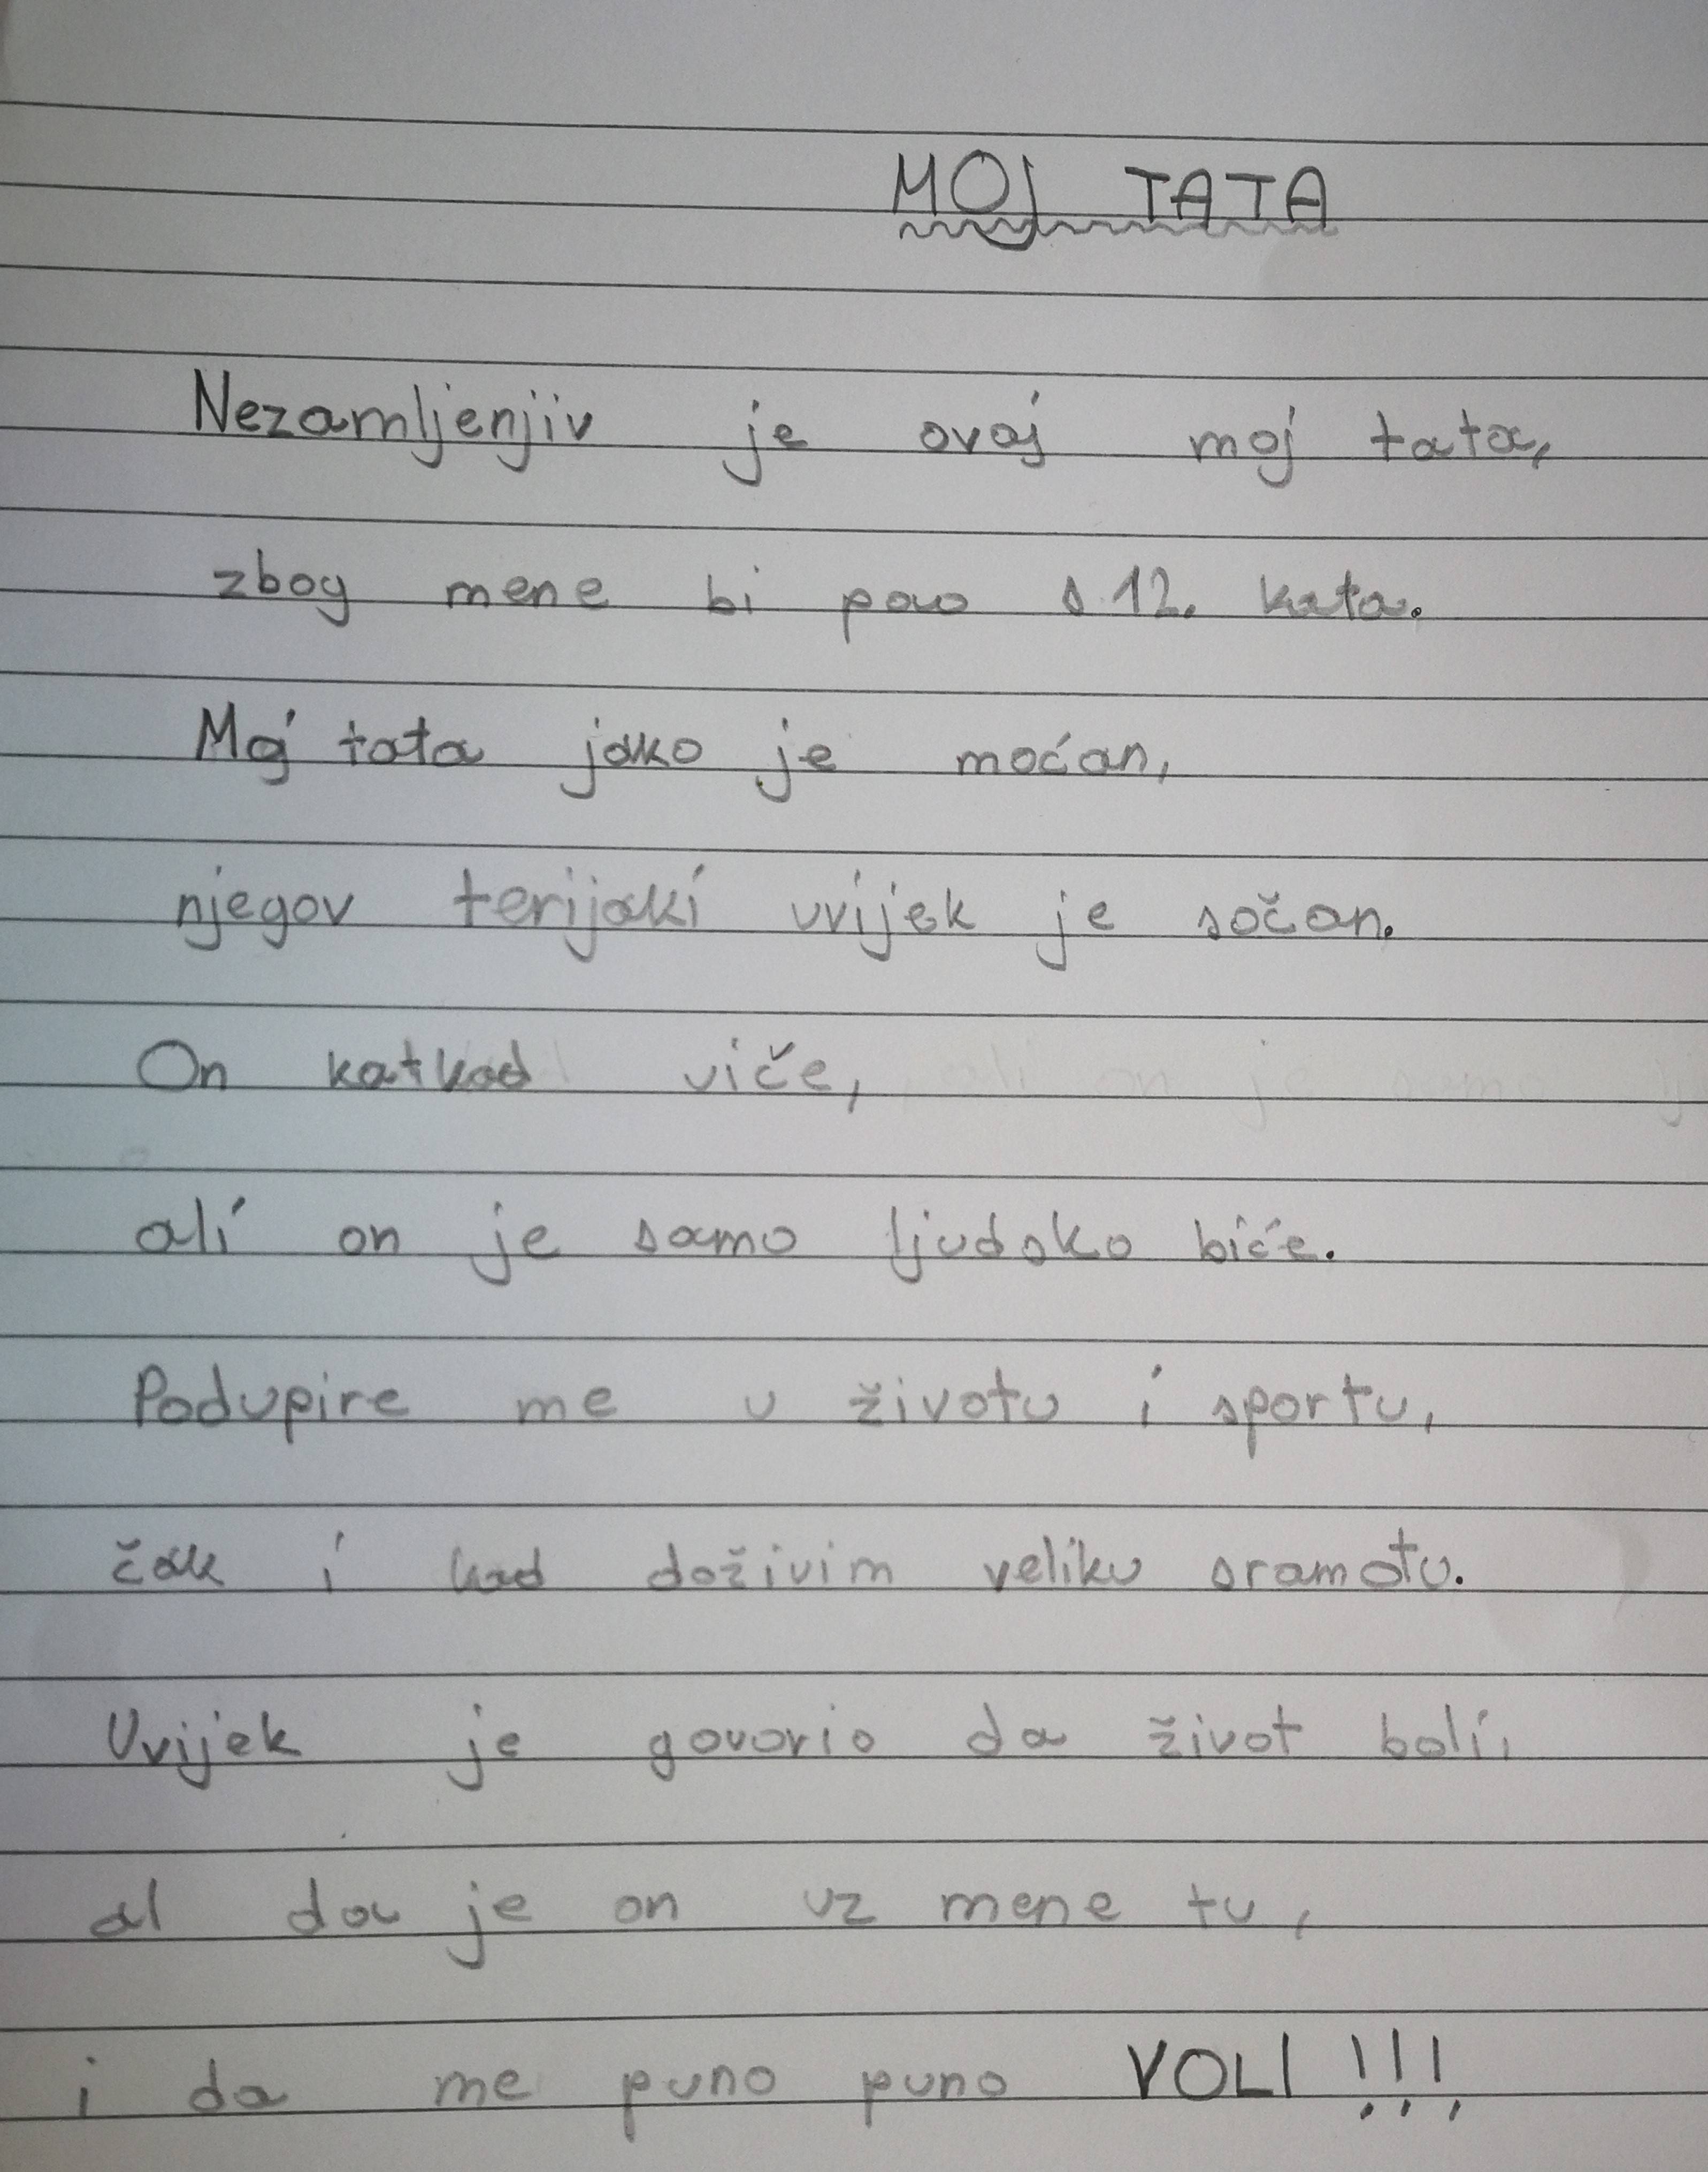 MOJ TATA
Nezamljenjiv je ovaj moj tata,
zbog mene bi pao s 12. kata.
Moj tata jako je moćan,
njegov terijaki uvijek je sočan.
On katkad viče,
ali on je samo ljudsko biće.
Podupire me u životu i sportu,
čak i kad doživim veliku sramotu.
Uvijek je govorio da život boli,
al da je on uz mene tu,
i da me puno puno VOLI !!!